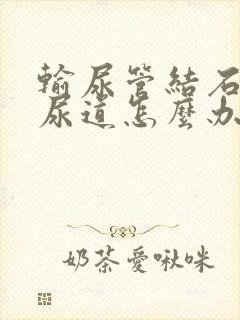 輸尿管結石
尿道怎麼办
奶茶愛啾咪